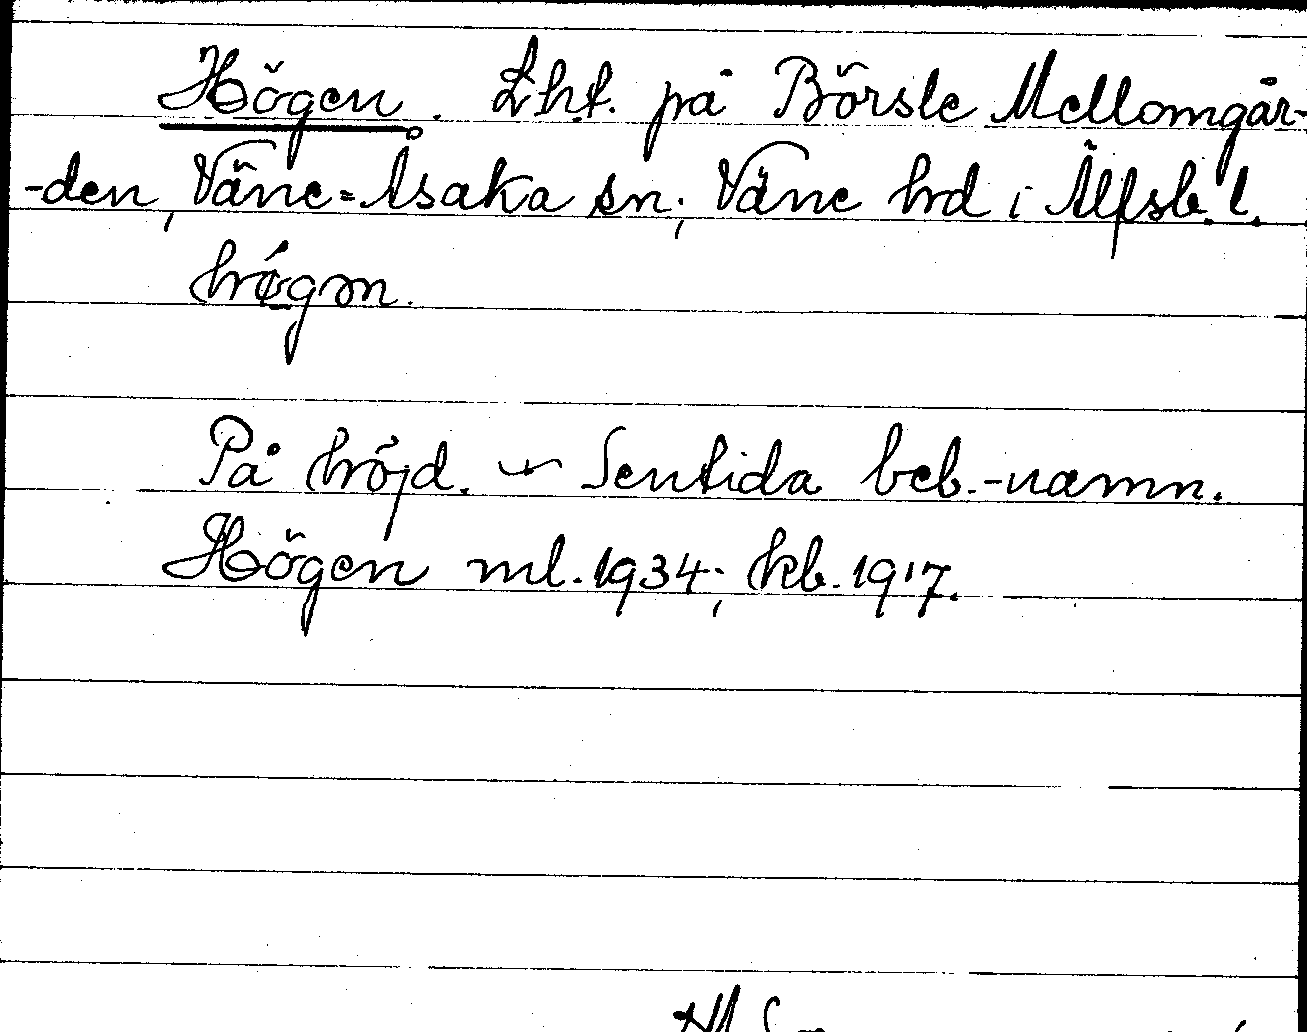 Högen. Lht. på Börsle Mellomgår-
-den, Väne-Åsaka sn; Väne hd i Älfsb. l.
På höjd. ~ Sentida beb.-namn.
Högen ml. 1934; kb. 1917.